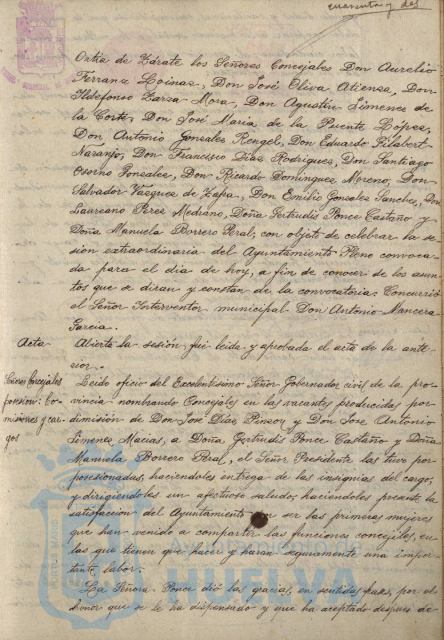 cuarenta y dos
Ortiz de Zárate los Señores Concejales Don Aurelio
Ferranz Loinaz, Don José Oliva Atienza, Don
Ildefonso Zarza Mora, Don Agustín Jimenez de
la Corte, Don José María de la Puente López,
Don Antonio Gonzalez Rengel, Don Eduardo Filabert
Naranjo, Don Francisco Diaz Rodriguez, Don Santiago
Osorno Gonzalez, Don Ricardo Dominguez Moreno, Don
Salvador Vázquez de Zafra, Don Emilio Gonzalez Sanchez, Don
Laureano Perez Medrano, Doña Gertrudis Ponce Castaño y
Doña Manuela Borrero Peral, con objeto de celebrar la se-
sion extraordinaria del Ayuntamiento Pleno convoca-
da para el dia de hoy, a fin de conocer de los asun-
tos que se diran y constan de la convocatoria. Concurrió
el Señor Interventor municipal Don Antonio Mancera
Garcia.
Acta
Abierta la sesión, fué leida y aprobada el acta de la ante-
rior.
Concejales
posesion: Co-
misiones y car-
gos
Leido oficio del Excelentisimo Señor Gobernador civil de la pro-
vincia nombrando Concejales en las vacantes producidas por
dimisión de Don José Diaz Pinzon y Don José Antonio
Jimenez Macias, a Doña Gertrudis Ponce Castaño y Doña
Manuela Borrero Peral, el Señor Presidente las tuvo por
posesionadas, haciendoles entrega de las insignias del cargo,
y dirigiendoles un afectuoso saludo, haciendoles presente la
satisfaccion del Ayuntamiento por ser las primeras mujeres
que han venido a compartir las funciones concejiles, en
las que tienen que hacer y harán seguramente una impor-
tante labor.
La Señora Ponce dió las gracias, en sentidas frases, por el
honor que se le ha dispensado y que ha aceptado despues de
HUELVA